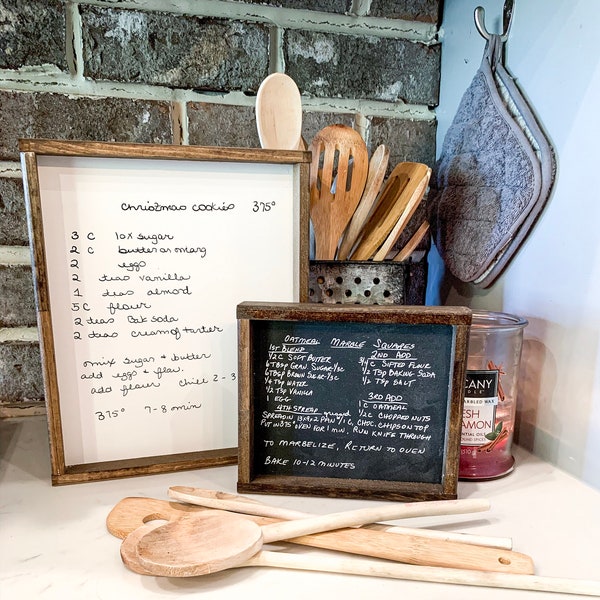 Christmas cookies 375°
3 C 10x sugar
2 C butter or marg
2 eggs
2 teas vanilla
1 teas almond
5 C flour
2 teas Bak soda
2 teas cream of tarter
mix sugar & butter
add eggs & flav.
add flour chill 2-3
375° 7-8 min
Oatmeal Marble Squares
1st Blend
1/2 C Soft Butter
6 Tbsp Gran. Sugar-1/3c
6 Tbsp Brown Sugar-1/3c
1/4 Tsp Water
1/2 Tsp Vanilla
1 Egg
2nd Add
3/4 C Sifted Flour
1/2 Tsp Baking Soda
1/2 Tsp Salt
3rd Add
1 C Oatmeal
1/2 C Chopped Nuts
4th Spread
Spread in 13x9x2 Pan / 1 C. Choc. Chips on top
Put in 375° oven for 1 min. Run knife through
to marbelize, Return to oven
Bake 10-12 minutes
CANY